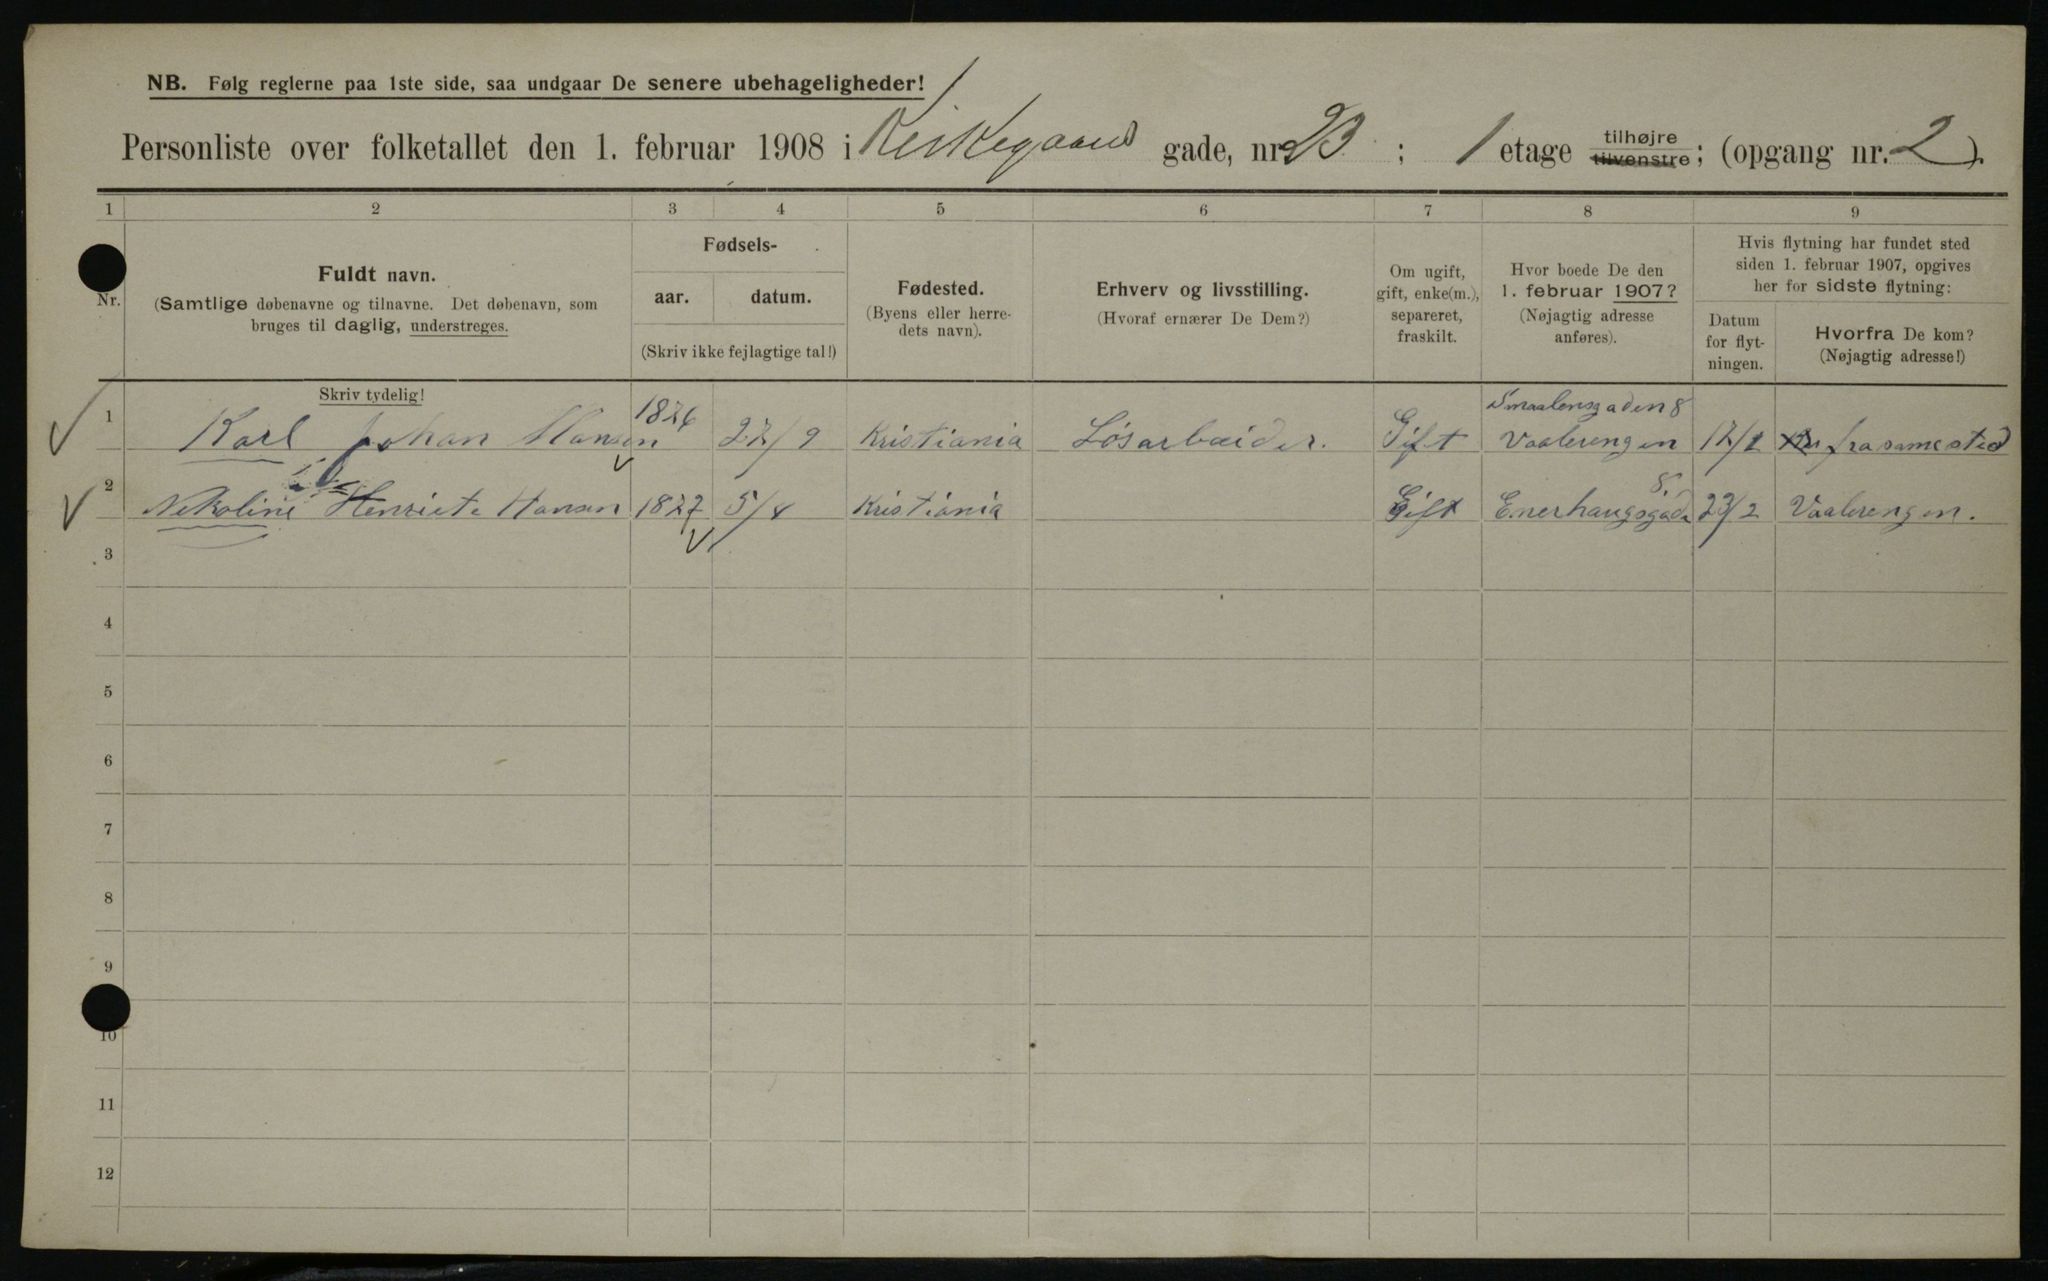 NB. Følg reglerne paa 1ste side, saa undgaar De senere ubehageligheder!
Personliste over folketallet den 1. februar 1908 i Kirkegaards gade, nr. 23 ; 1 etage tilhøjre tilvenstre; (opgang nr. 2 ).
1 2 3 4 5 6 7 8 9
Nr.
Fuldt navn.
(Samtlige døbenavne og tilnavne. Det døbenavn, som
bruges til daglig, understreges.
Skriv tydelig!
Fødsels-
aar. datum.
(Skriv ikke fejlagtige tal!)
Fødested.
(Byens eller herre-
dets navn).
Erhverv og livsstilling.
(Hvoraf ernærer De Dem?)
Om ugift,
gift, enke(m.),
separeret,
fraskilt.
Hvor boede De den
1. februar 1907?
(Nøjagtig adresse
anføres).
Hvis flytning har fundet sted
siden 1. februar 1907, opgives
her for sidste flytning:
Datum
for flyt-
ningen.
Hvorfra De kom?
(Nøjagtig adresse!)
Smaalensgaden 8
1 Karl Johan Hansen 1876 27/9 Kristiania Løsarbeider. Gift Vaalerengen fra samme sted
2 Nikoline Henriete Hansen 1877 5/4 Kristiania Gift Enerhaugsgade 8 23/2 Vaalerengen.
3
4
5
6
7
8
9
10
11
12